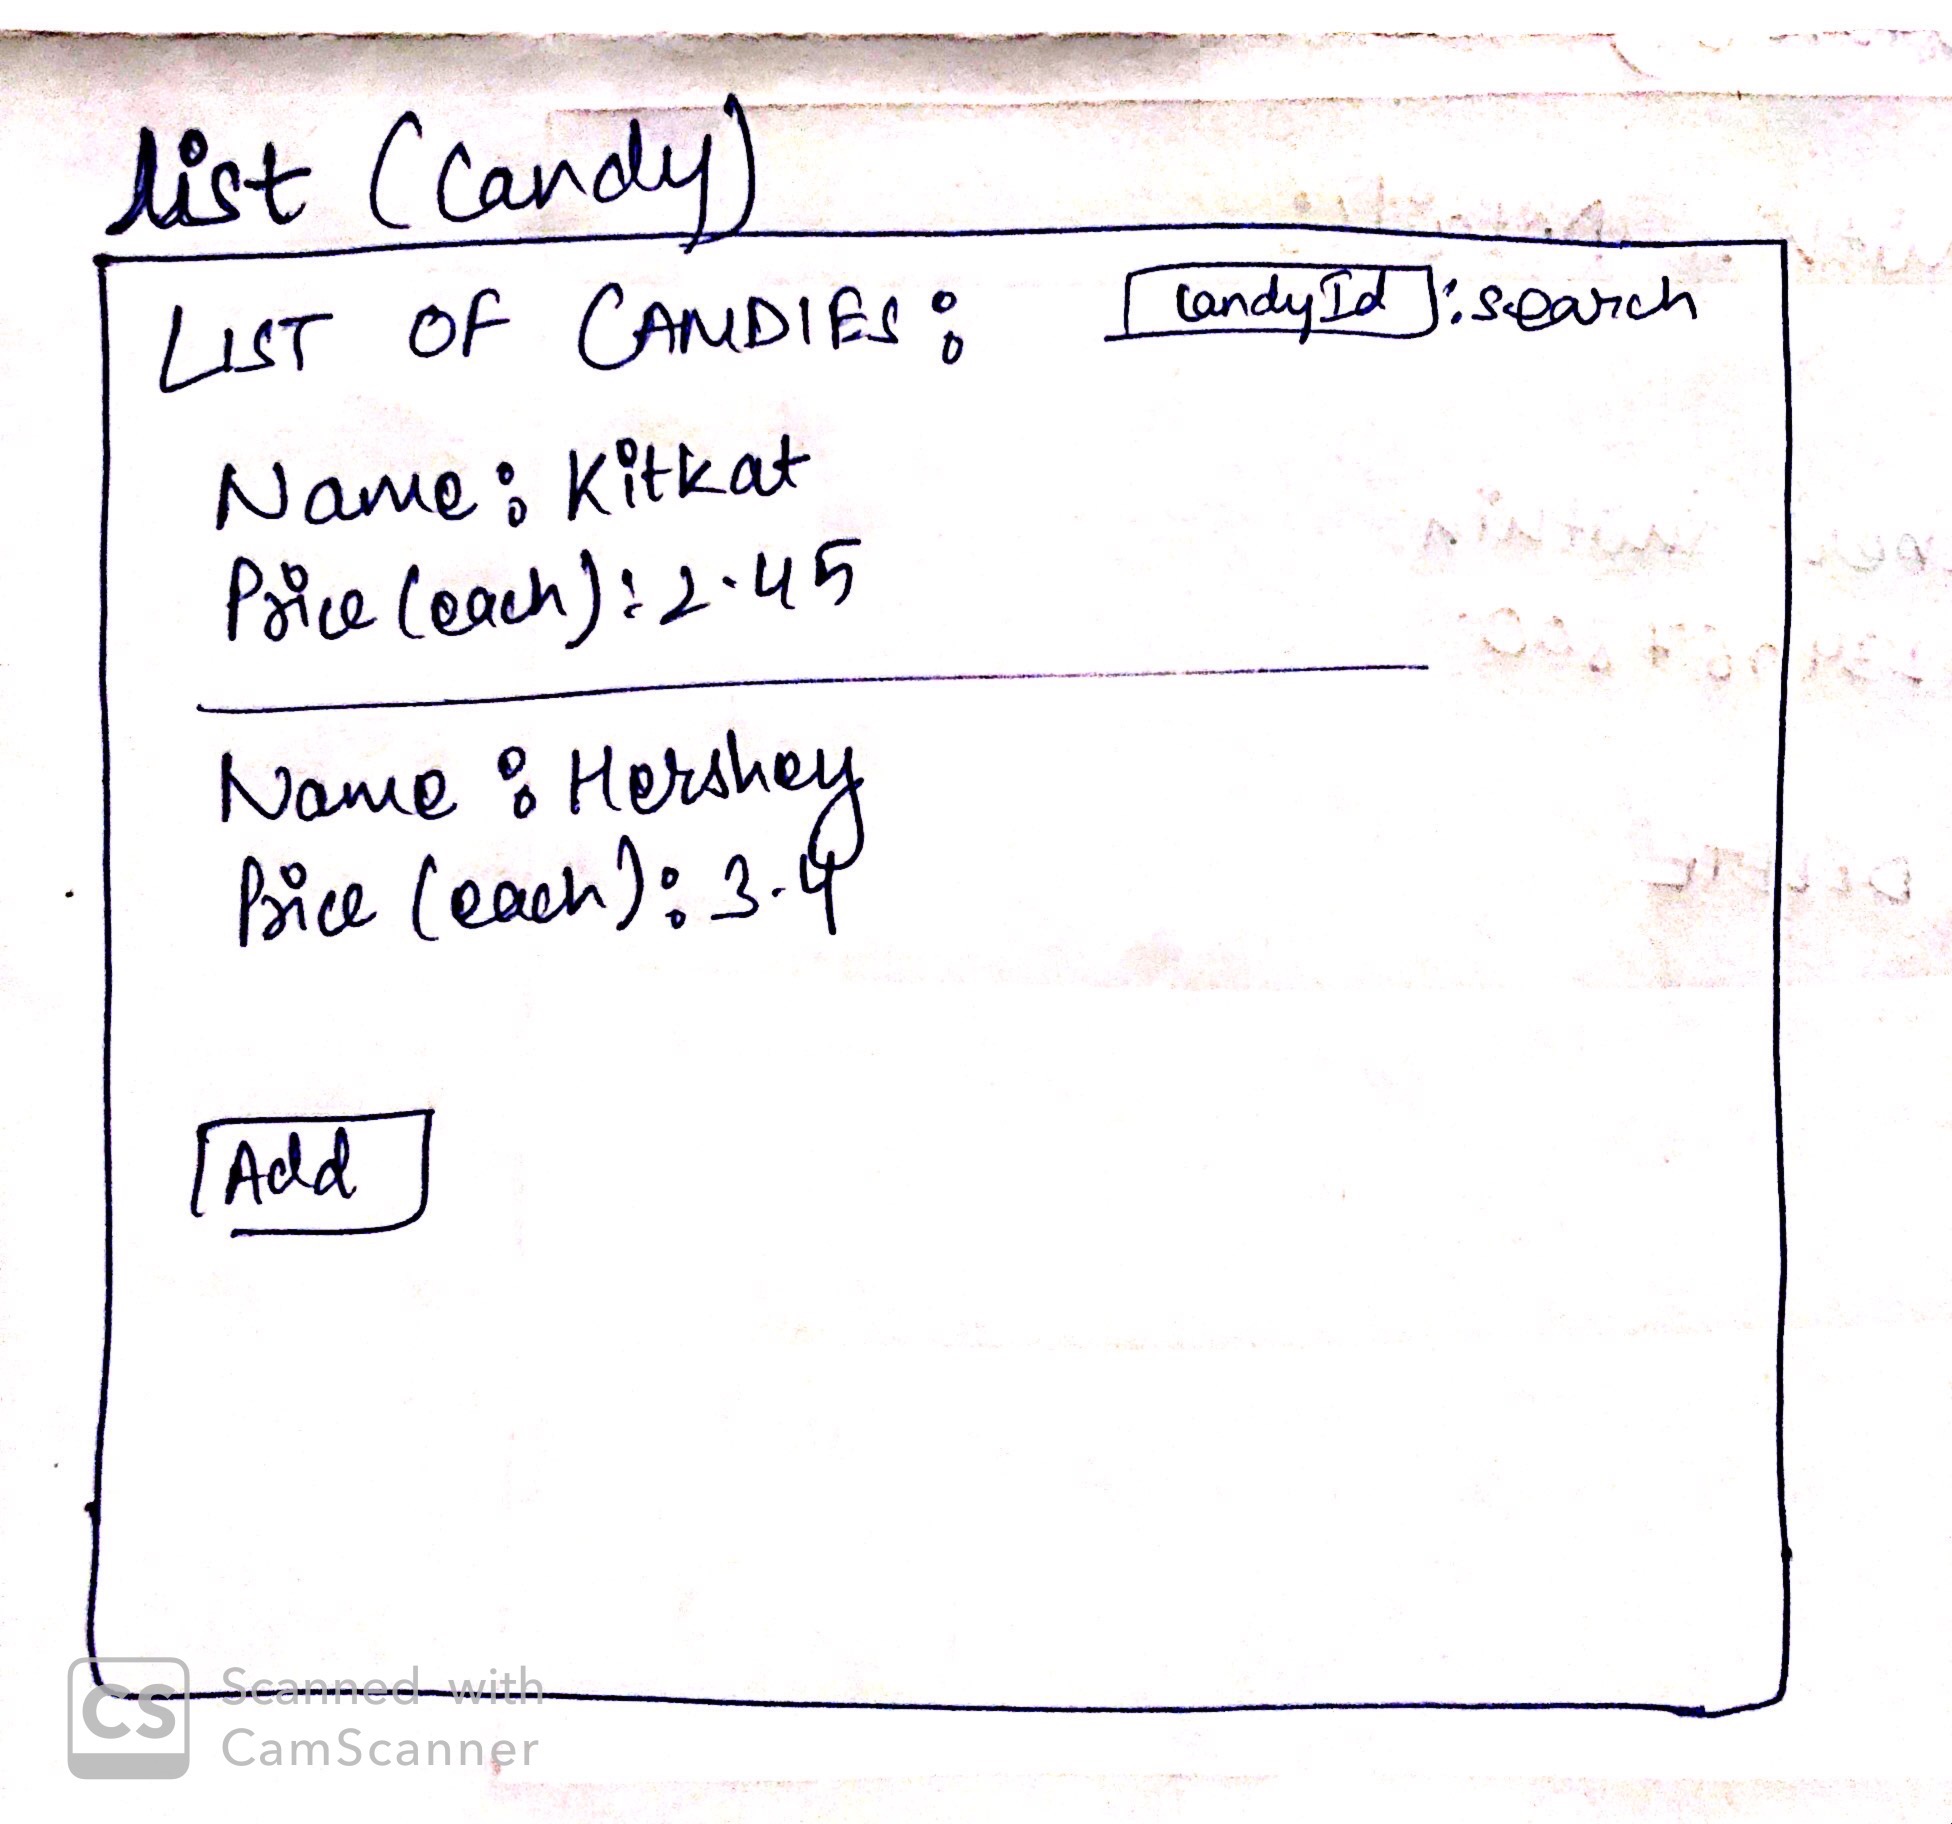 list (Candy)
LIST OF CANDIES:
CandyId : search
Name: Kitkat
Price (each): 2.45
Name: Hershey
Price (each): 3.4
Add
CS Scanned with
CamScanner